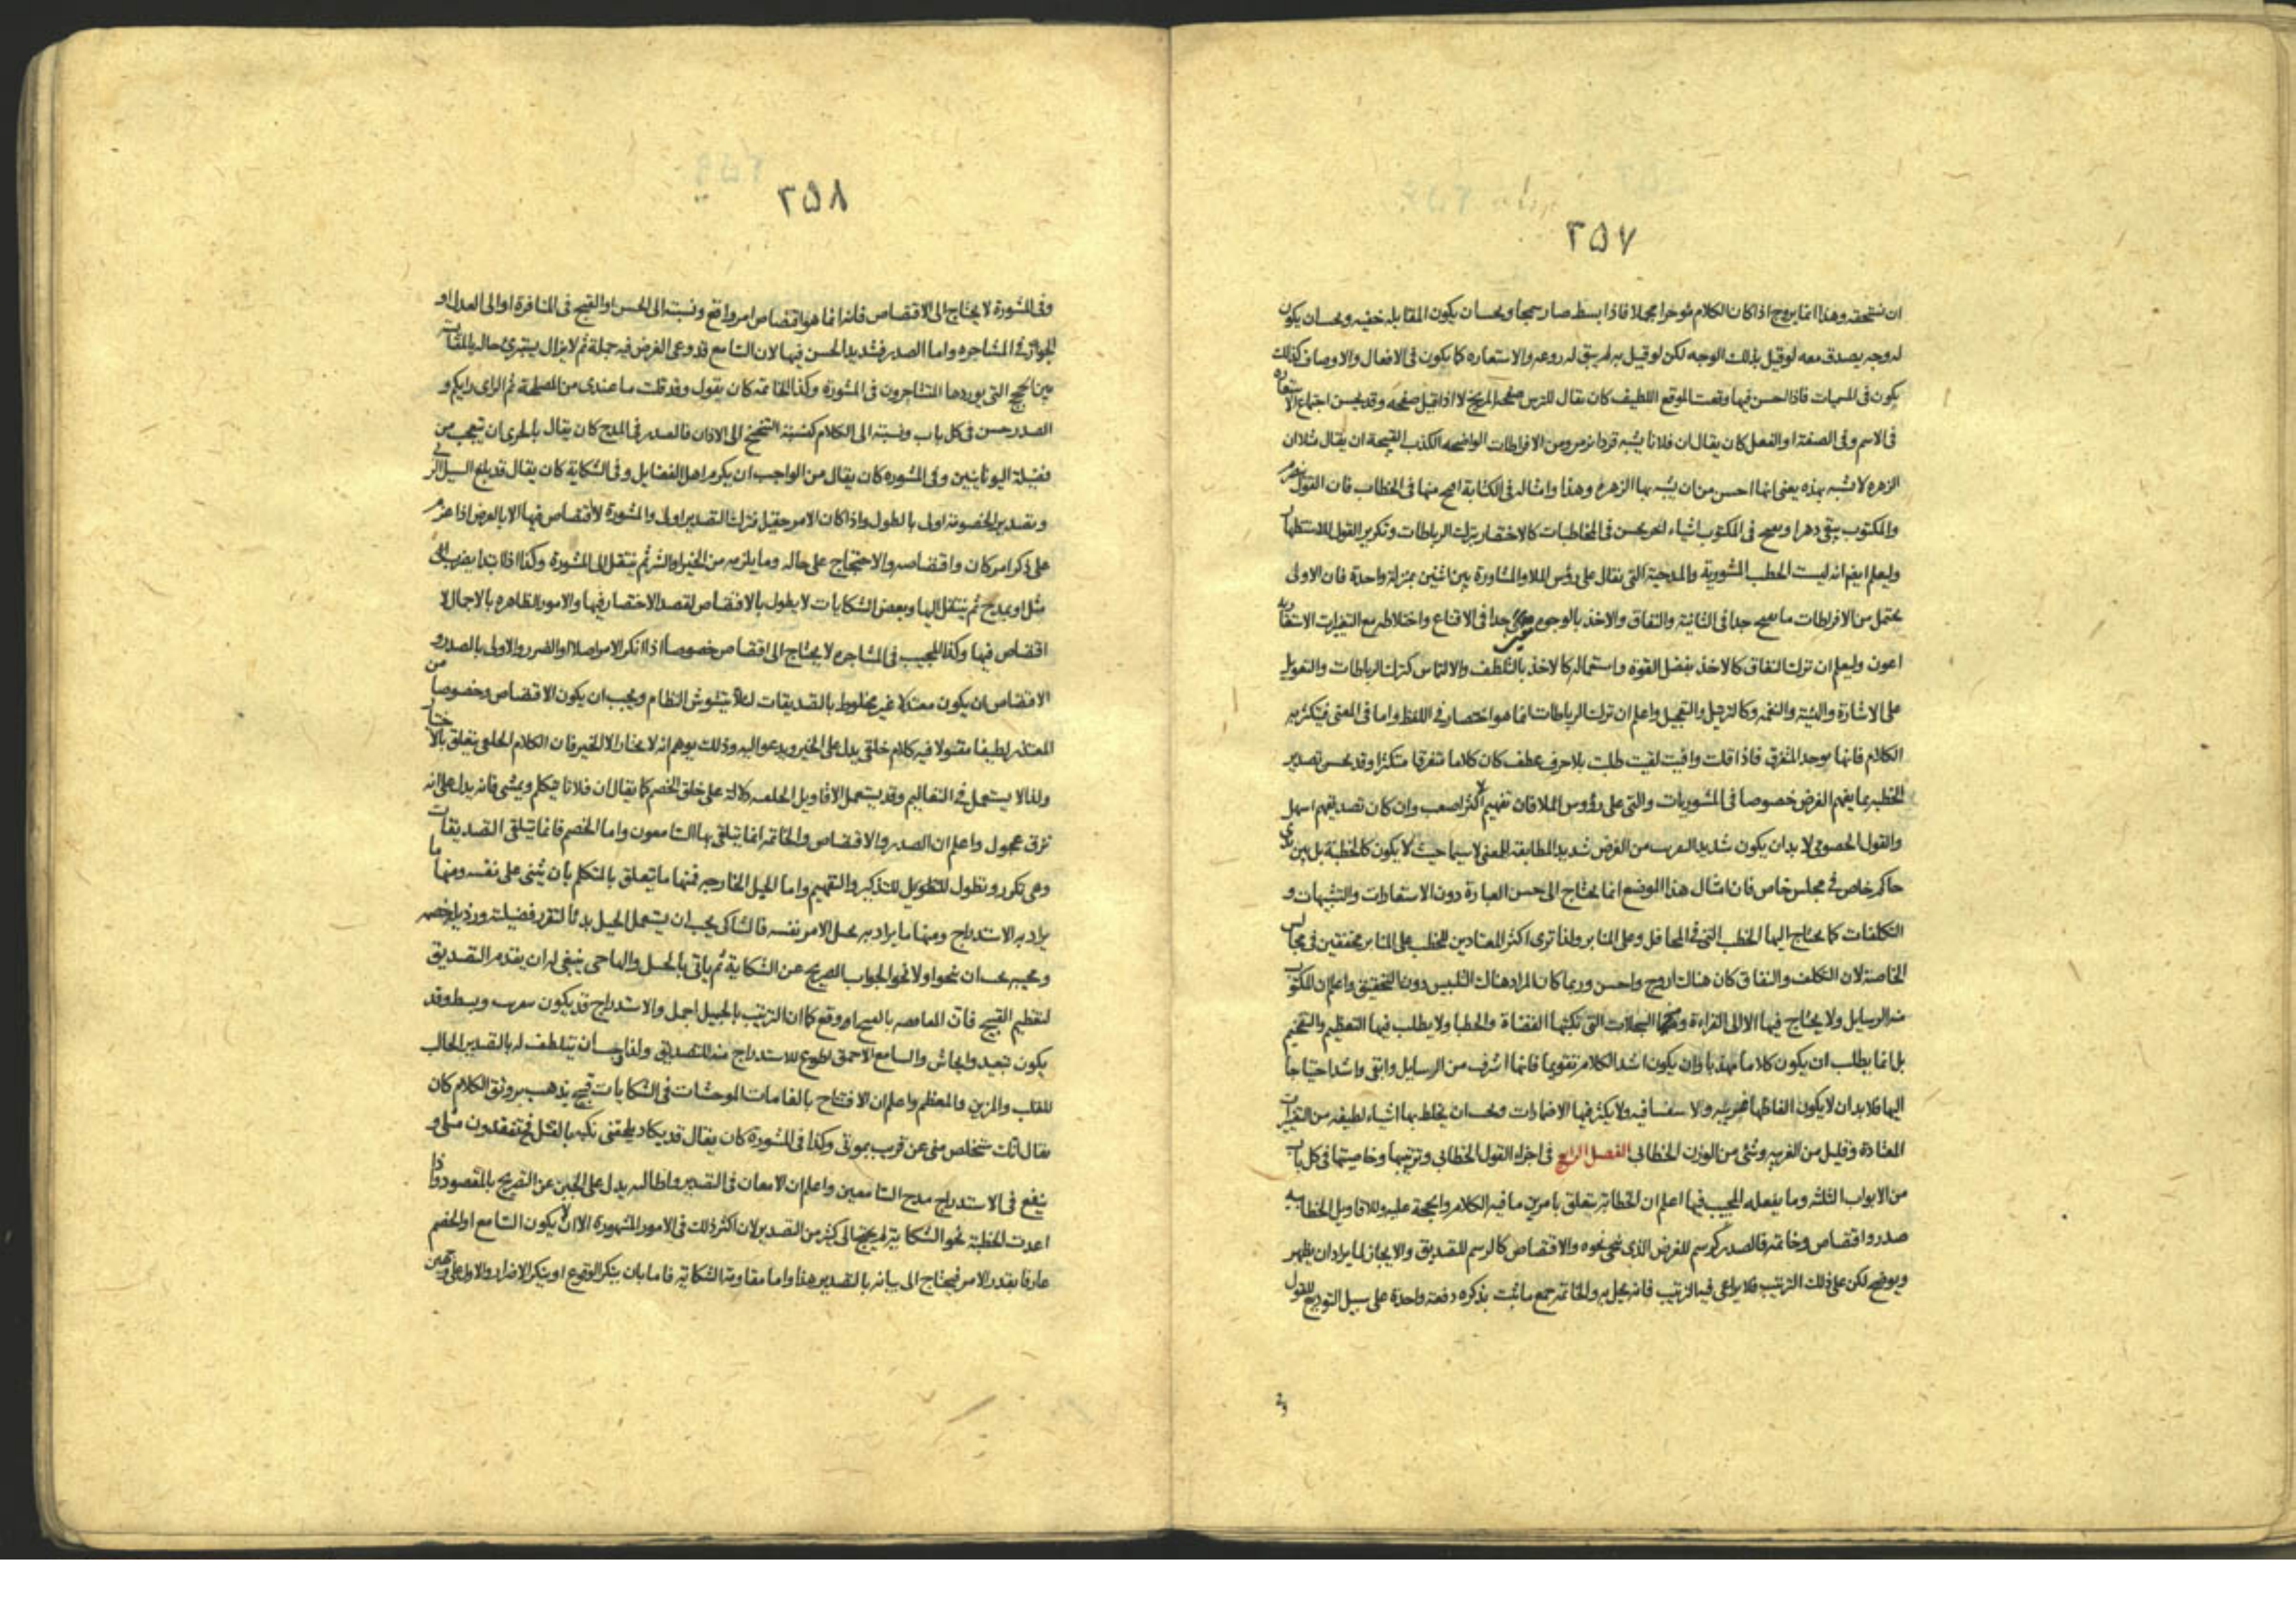 ٢٥٧
ان يستحقه وهذا انما يروج اذا كان الكلام موجزا مجملا فاذا بسط صار سمجا ويحسان يكون المقابله خفيه ويحسان يكون
له وجه يصدق معه لو قيل بذلك الوجه لكن لو قيل به لم يبق له روعه والاستعاره كما يكون في الافعال والاوصاف كذلك
يكون في المسميات فاذا احسن فيها وقعت الموقع اللطيف كان يقال للترس صفحه المريخ لا اذا قيل صفحه وقد يحسن اجتماع الاستعاره
في الاسم وفي الصفة او الفعل كان يقال ان فلانا يشبه قردا يزمر ومن الافراطات الواضحه الكذب القبيحة ان يقال مثلا ان
الزهره لا تشبه بهذه يعنى انها احسن من ان يشبه بها الزهرة وهذا وامثاله في الكتابة اقبح منها في الخطاب فان القول ينصرم
والمكتوب يبقى دهرا ويقبح في المكتوب اشياء اخر يحسن في المخاطبات كالاختصار بترك الرباطات وتكرير القول للاستظهار
وليعلم ايضا انه ليست الخطب المشورية والمدحية التي يقال على رؤس الملا والمشاورة بين اثنين بمنزلة واحدة فان الاولى
يحتمل من الافراطات ما يقبح جدا في الثانية والنفاق والاخذ بالوجوه جدا في الاقناع واختلاطه مع التغيرات الاستعارية
اعون وليعلم ان ترك النفاق كالاخذ بفضل القوة واستماله كالاخذ بالتلطف والالتماس كترك الرباطات والتعويل
على الاشارة والهيئة والنغمه وكالترحيل والتعجيل واعلم ان ترك الرباطات انما هو اختصار في اللفظ واما في المعنى فيتكثر به
الكلام فانها يوحد المتفرق فاذا قلت وافيت لقيت طلبت بلا حرف عطف كان كلاما متفرقا متكثرا وقد يحسن تصدير
الخطبه بما يفهم الغرض خصوصا في المشوريات والتي على رؤوس الملا فان تفهيم الاكثر اصعب وان كان تصديقهم اسهل
والقول الخصومي لا بد ان يكون شديد القرب من الغرض شديد المطابقة للمعنى لا سيما حيث لا يكون كالخطبة بل بين يدى
حاكم خاص في مجلس خاص فان امثال هذا الموضع انما يحتاج الى حسن العبارة دون الاستعارات والتشبيهات و
التكلفات كما يحتاج اليها الخطب التي في المحافل وعلى المنابر ولذا ترى اكثر المعتادين للخطب على المنابر مخفقين في مجالس
الخاصة لان التكلف والنفاق كان هناك اروج واحسن وربما كان المراد هناك التلبيس دون التحقيق واعلم ان المكتوب
منه الرسايل ولا يحتاج فيها الا الى القراءة ومنها السجلات التي تكتبها القضاة والخطبا ولا يطلب فيها التعظيم والتفخيم
بل انما يطلب ان يكون كلاما مهذبا وان يكون اشد الكلام تقويما فانها اشرف من الرسايل وابقى واشد احتياجا
اليها فلا بد ان لا يكون الفاظها غريبه ولا سفسافيه ولا يكثر فيها الاضمارات ويحسان يخلط بها اشياء لطيفه من التغيرات
المعتادة وقليل من الغريبه وشئ من الوزن الخطابي الفصل الرابع في اجزاء القول الخطابي وترتيبها وخاصيتها في كل باب
من الابواب الثلثه وما يفعله المجيب فيها اعلم ان الخطابة يتعلق بامرين ما فيه الكلام والحجة عليه وللاقاويل الخطابيه
صدر واقتصاص وخاتمه فالصدر كرسم للغرض الذي ينحى نحوه والاقتصاص كالرسم للتصديق والايجاز لما يراد ان يظهر
ويوضح لكن على ذلك الترتيب فلا يراعى فيه الترتيب فانه يخل به والخاتمه جمع ما ثبت بذكره دفعة واحدة على سبيل التوديع للقول
وفى
٢٥٨
وفي المشورة لا يحتاج الى الاقتصاص فانه انما هو اقتصاص امر واقع ونسبته الى الحسن او القبح في المنافرة او الى العدل او
الجور في المشاجره واما الصدر فشديد الحسن فيها لان السامع قد وعى الغرض فيه جملة ثم لا يزال يستبرئ حاله بالمقابلات
بين الحجج التي يوردها المتشاجرون في المشورة وكذا الخاتمه كان يقول وقد قلت ما عندى من المصلحة ثم الراى رايكم و
الصدر حسن في كل باب ونسبته الى الكلام كنسبة التنحنح الى الاذان فالصدر في المدح كان يقال بالحرى ان تعجب من
فضيلة اليونانيين وفي المشوره كان يقال من الواجب ان يكرم اهل الفضايل وفي الشكاية كان يقال قد بلغ السيل الزبى
وتصدير الخصومة اولى بالطول واذا كان الامر حقيرا فترك التصدير اولى والمشورة لا اقتصاص فيها الا بالعرض اذا عزم
على ذكر امر كان واقتصاصه والاحتجاج على حاله وما يلزمه من الخير او الشر ثم ينتقل الى المشورة وكذا اذا ابتدا بضرب
مثل او بمدح ثم ينتقل اليها وبعض الشكايات لا يطول بالاقتصاص لقصد الاختصار فيها والامور الظاهره بالاجمال لا
اقتصاص فيها وكذا المجيب في المشاجره لا يحتاج الى اقتصاص خصوصا اذا انكر الامر اصلا او الضرر والاولى بالصدر و
الاقتصاص ان يكون معتدلا غير مخلوط بالتصديقات لئلا يتشوش النظام ويجب ان يكون الاقتصاص وخصوصا من
المعتذر لطيفا مقبولا فيه كلام خلقي يدل على الخير ويدعو اليه وذلك يوهم انه لا يختار الا الخير فان الكلام الخلقي يتعلق بالاختيار
ولذا لا يستعمل في التعاليم وقد يستعمل الاقاويل الخلقيه دلالة على خلق الخصم كما يقال ان فلانا يتكلم ويمشي فانه يدل على انه
نزق عجول واعلم ان الصدر والاقتصاص والخاتمه انما يتلقى بها السامعون واما الخصم فانما يتلقى التصديقات
وهي تكرر وتطول للتطويل للتذكير والتفهيم واما الحيل الخارجه فمنها ما يتعلق بالمتكلم بان يثنى على نفسه ومنها ما
يراد به الاستدراج ومنها ما يراد به الامر نفسه فالشاكي يجب ان يستعمل الحيل بدئا لتقرر فضيلته ورذيله خصمه
ومجيبه يجب ان ينحو اولا نحو الجواب الصريح عن الشكاية ثم ياتي بالحيل والهاجى ينبغي له ان يقدم التصديق
لتعظيم القبح فان بالقبح اوقع كما ان الترتيب بالجميل اجمل والاستدراج قد يكون بتقريب وبسط وقد
يكون بتبعيد وايحاش والسامع الاحمق اطوع للاستدراج منه للتصديق ولذا يجب ان يتلطف له بالتصدير الجالب
للقلب والمزين والمعظم واعلم ان الافتتاح بالغامات الموحشات في الشكايات قبيح يذهب برونق الكلام كان
يقال انك ستخلص مني عن قريب بموتى وكذا في المشورة كان يقال قد يكاد يلحقنى نكبه بالقتل فتفتقدون مثلي و
ينفع في الاستدراج مدح السامعين واعلم ان الامعان في التصدير واطالته يدل على الجبن عن التصريح بالمقصود واذا
اعدت الخطبة نحو الشكاية لم يحتج الى كثير من التصدير لان اكثر ذلك في الامور المشهورة الا ان لا يكون السامع او الخصم
عارفا بقدر الامر فيحتاج الى بيانه بالتصدير هذا واما مقاومة الشكايه فاما بان ينكر الوقوع او ينكر الاضرار والاول على وجهين